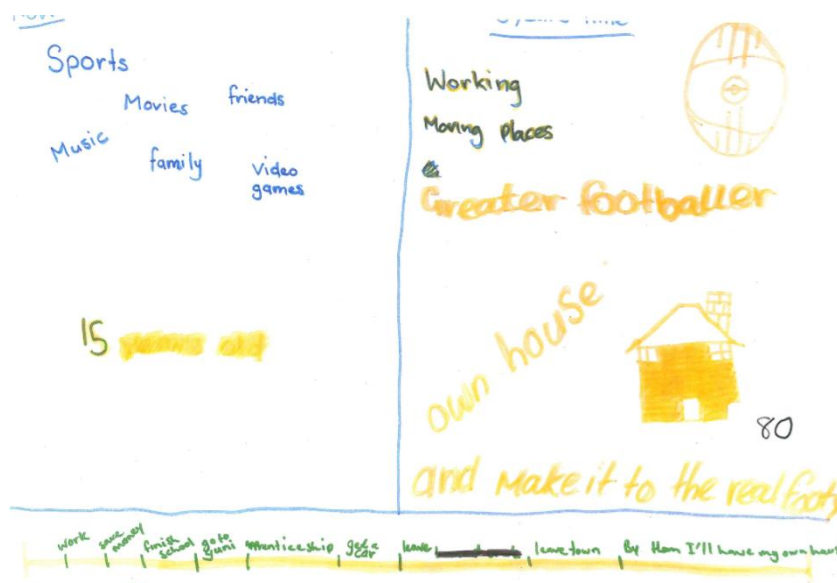 Now
Sports
Movies
friends
Music
family
video
games
15 years old
Years Time
Working
Moving places
Greater footballer
own house
80
and Make it to the real foot
work
save
money
finish
school
go to
uni
apprenticeship
get a
car
leave
leave town
By then I'll have my own